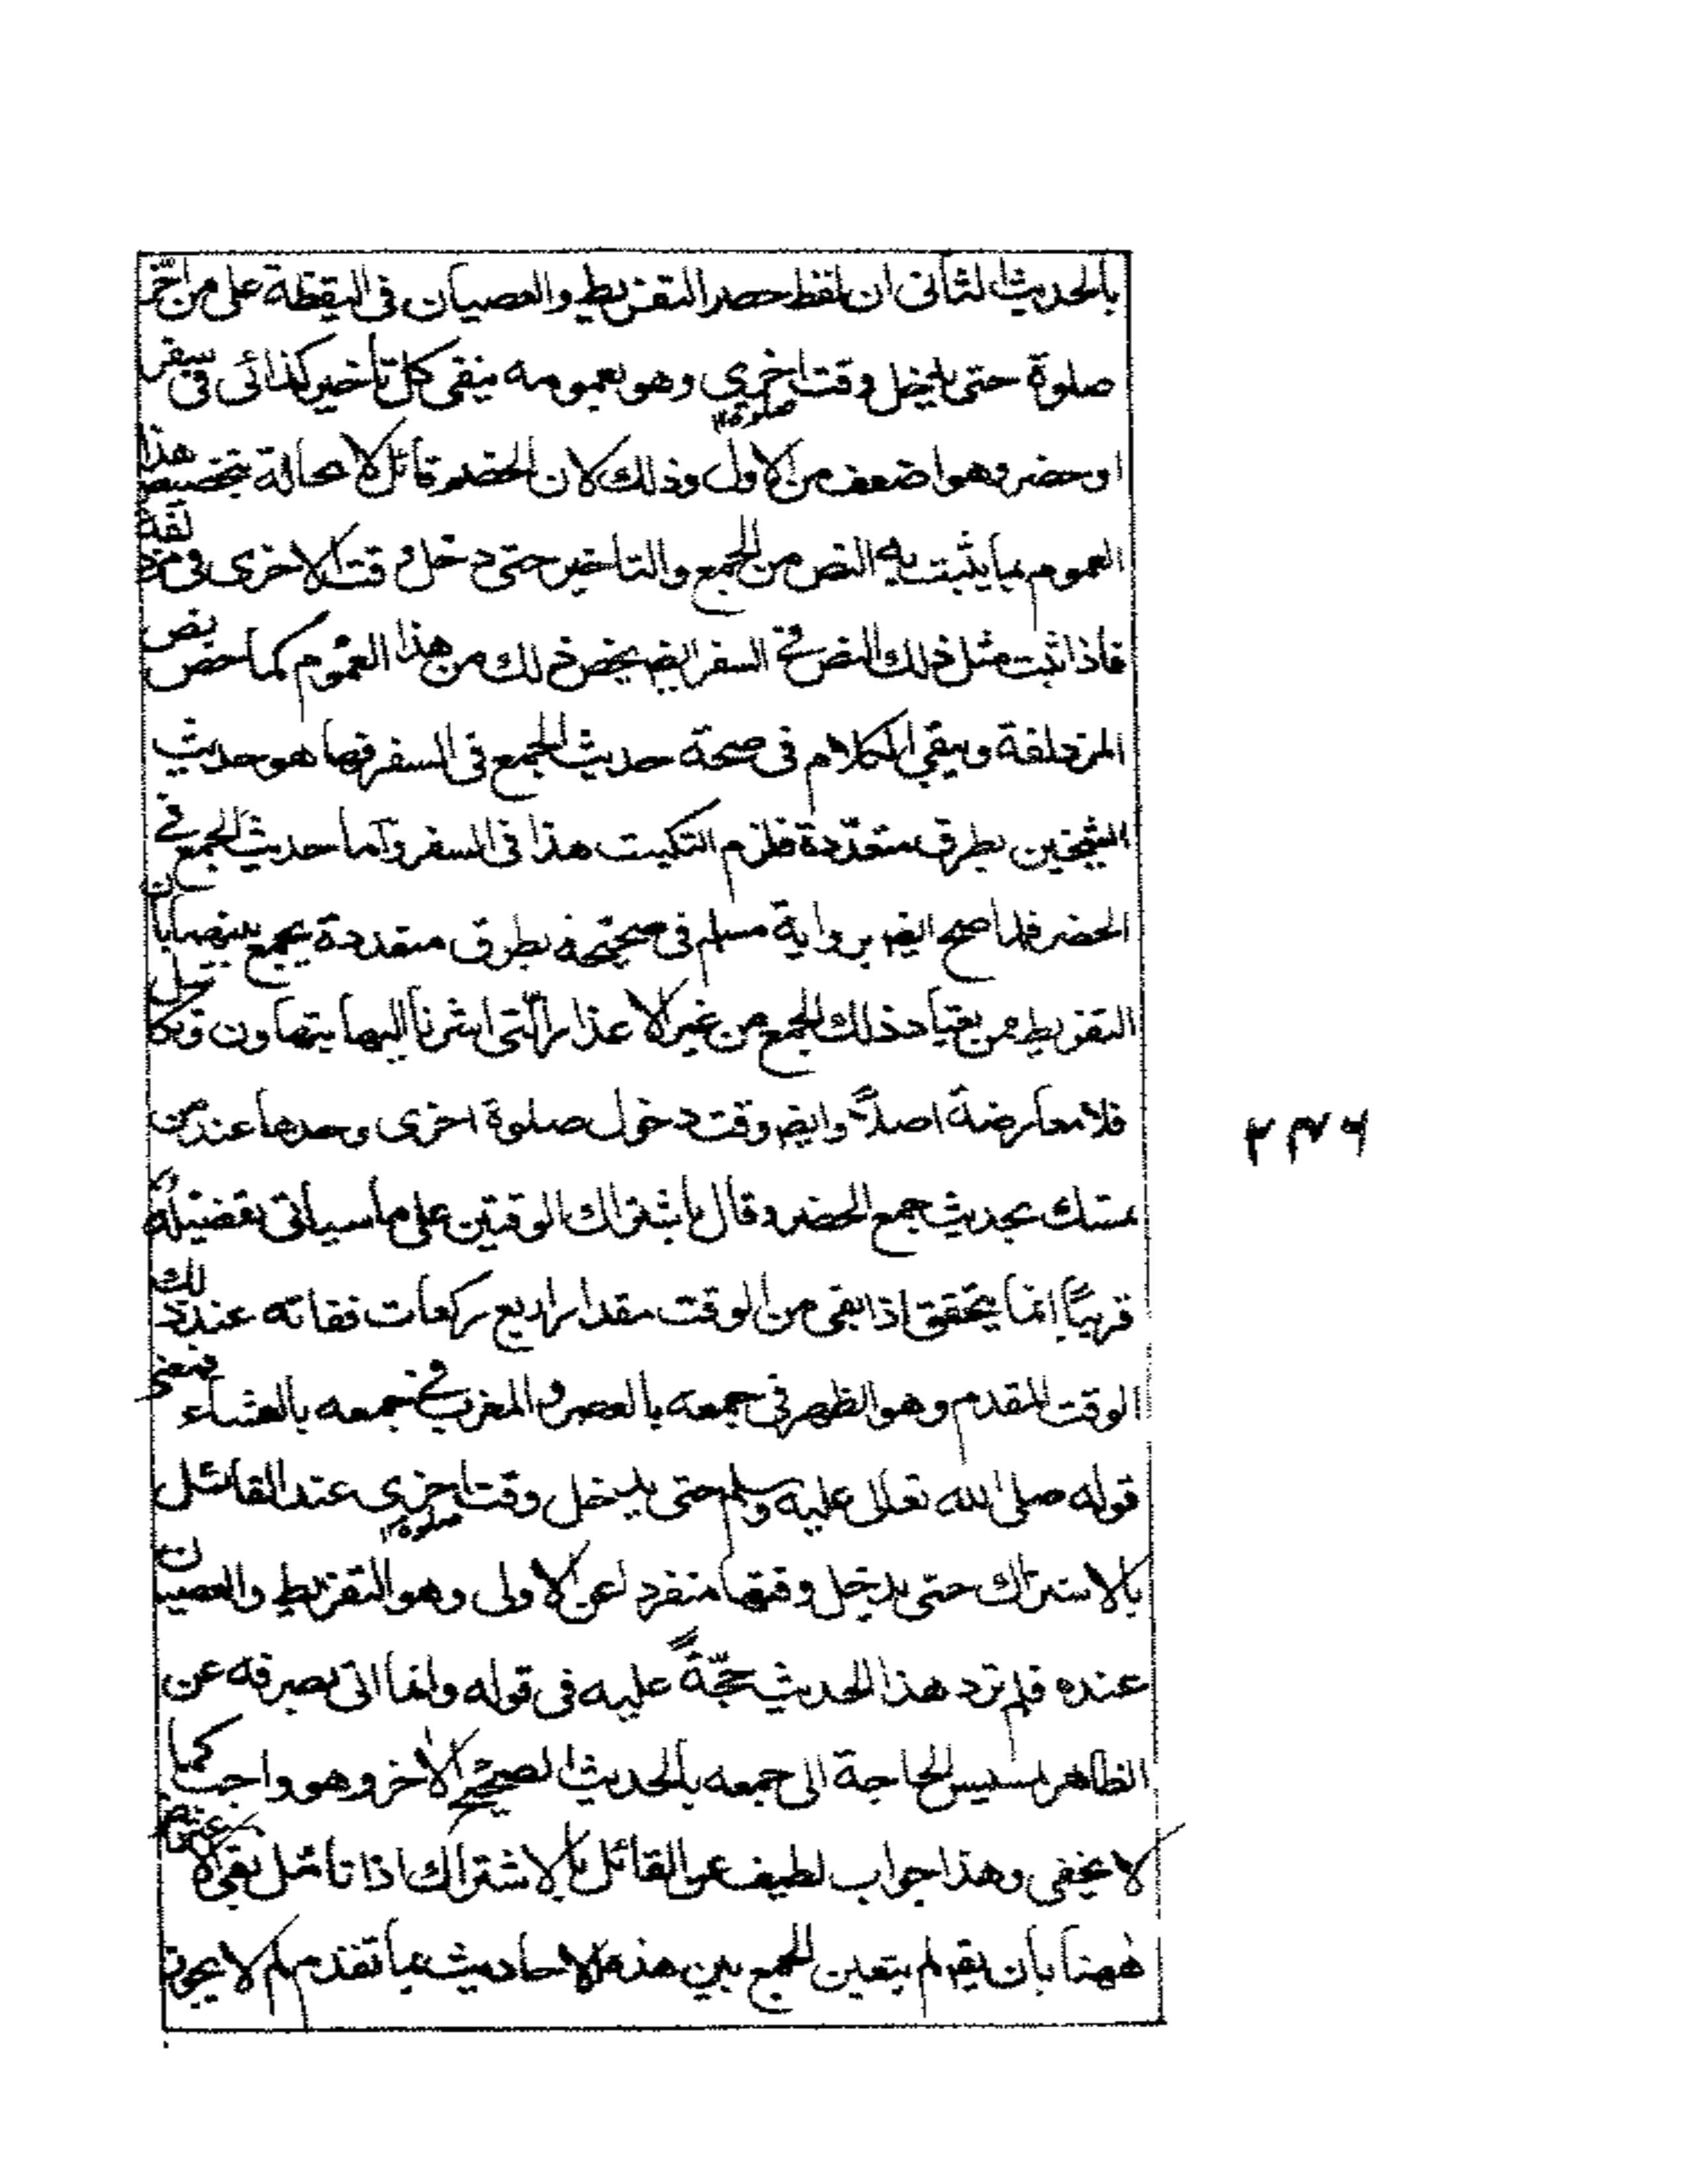 بالحديث الثانى ان لفظ حصر التفريط والعصيان فى اليقظة على من اخّر
صلوة حتى يدخل وقت اخرى وهو بعمومه ينفى كل تأخير كذائى فى سفر
صلوة ١٢
او حضر وهو اضعف من الاول وذلك لان الخصم قائل لا محالة بتخصيص هذا
العموم بما يثبت به النص من الجمع والتاخير حتى دخل وقت الاخرى فى مزدلفة
فاذا ثبت مثل ذلك النص فى السفر ايضه يخص ذلك من هذا العموم كما خص بنص
المزدلفة ويبقى الكلام فى صحة حديث الجمع فى السفر فها هو حديث
الشيخين بطرق متعدّدة فلزم التكيت هذا فى السفر وآما حديث الجمع فى
الحضر فلما صح ايضه برواية مسلم فى صحيحه بطرق متعددة يجمع بينهما بان
التفريط من يعتياد ذلك الجمع من غير الاعذار الّتى اشرنا اليها بتهاون وتكاسل
فلا معارضة اصلاً وايضه وقت دخول صلوة اخرى وحدها عند من
تمسك بحديث جمع الحضر وقال باشتراك الوقتين على ما سيأتى تفضيله
قريباً انما يتحقق اذا بقى من الوقت مقدار اربع ركعات ففاته عند ذلك
الوقت المقدم وهو الظهر فى جمعه بالعصر والمغرب فى جمعه بالعشاء فمعنى
قوله صلى الله تعالى عليه وسلم حتى يدخل وقت اخرى عند القائل
صلوة ١٢
بالاشتراك حتى يدخل وقتها منفردا عن الاولى وهو التفريط والعصيان
عنده فلم ترد هذا الحديث حجّةً عليه فى قوله وانما اتى بصرفه عن
الظاهر لمسيس الحاجة الى جمعه بالحديث الصحيح الآخر وهو واجب كما
لا يخفى وهذا جواب لطيف عن القائل بالاشتراك اذا تأمل بقى الاعتراض
ههنا بان يقه لم يتعين الجمع بين هذه الاحاديث بما تقدم لم لا يجوز
٢٧٦